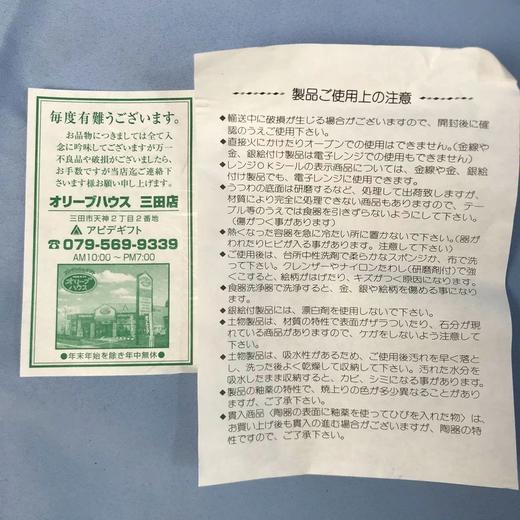 毎度有難うございます。
お品物につきましては全て入
念に吟味してございますが万一
不良品や破損がございましたら、
お手数ですが当店迄ご連絡下
さいます様お願い申し上げます。
オリーブハウス 三田店
三田市天神2丁目2番地
アピデギフト
☎079-569-9339
AM10:00~PM7:00
オリーブ
ハウス
●年末年始を除き年中無休●
製品ご使用上の注意
◆輸送中に破損が生じる場合がございますので、開封後に確
認のうえご使用下さい。
◆直接火にかけたりオーブンでの使用はできません。(金線や
金、銀絵付け製品は電子レンジでの使用もできません)
◆レンジOKシールの表示商品については、金線や金、銀絵
付け製品でも、電子レンジに使用できます。
◆うつわの底面は研磨するなど、処理して出荷致しますが、
材質により完全に処理できない商品もありますので、テー
ブル等のうえでは食器を引きずらないようにして下さい。
(傷がつく事があります)
◆熱くなった容器を急に冷たい所に置かないで下さい。(器が
われたりヒビが入る事があります。注意して下さい)
◆ご使用後は、台所中性洗剤で柔らかなスポンジか、布で洗
って下さい。クレンザーやナイロンたわし(研磨剤付)で強
くこすると、絵柄がはげたり、キズがつく原因になります。
◆食器洗浄器で洗浄すると、金、銀や絵柄を傷める事になり
ます。
◆銀絵付製品には、漂白剤を使用しないで下さい。
◆土物製品は、材質の特性で表面がザラついたり、石分が現
れている商品がありますので、ケガをしないよう注意して
下さい。
◆土物製品は、吸水性があるため、ご使用後汚れを早く落と
し、洗った後よく乾燥して収納して下さい。汚れた水分を
吸水したまま収納すると、カビ、シミになる事があります。
◆製品の釉薬の特性で、焼上りの色が多少異なることがあり
ますが、ご了承下さい。
◆貫入商品〈陶器の表面に釉薬を使ってひびを入れた物〉は、
お買い上げ後も貫入の進む場合がございますが、陶器の特
性ですので、ご了承下さい。